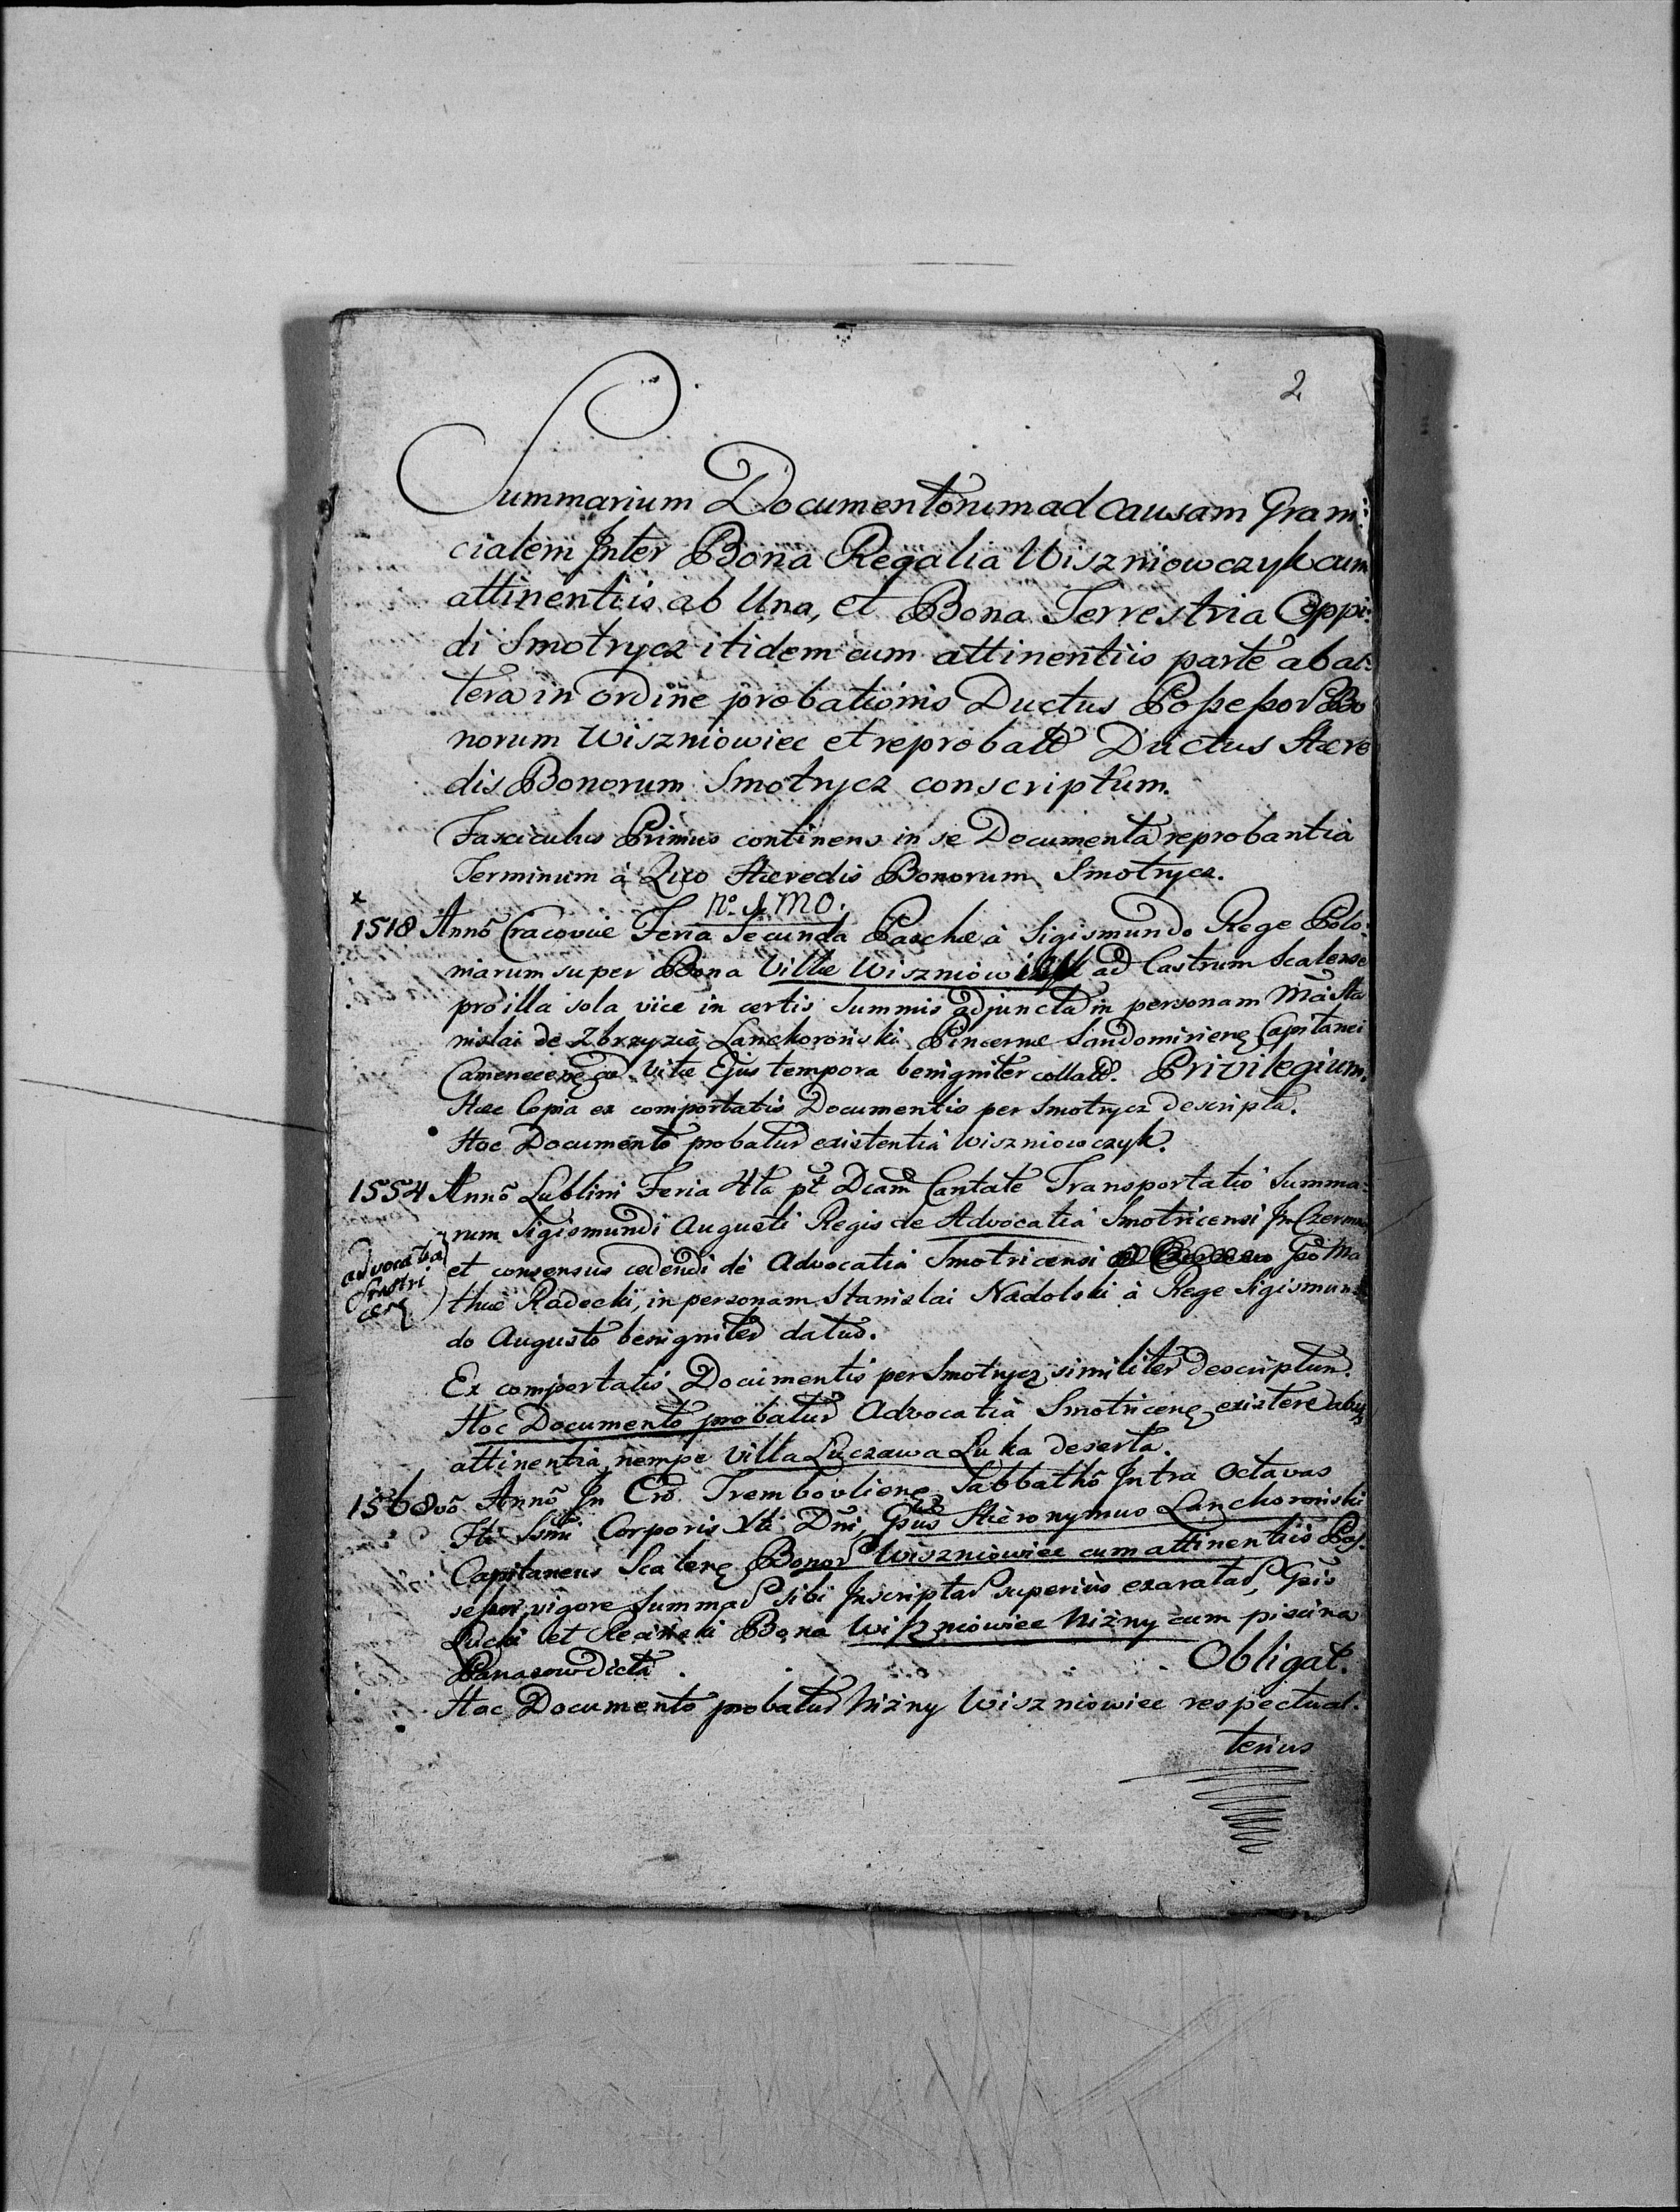 2
Summarium Documentorum ad causam Grani:
cialem Inter Bona Regalia Wiszniowczyk cum
attinentiis ab Una, et Bona Terrestria Oppi:
di Smotrycz itidem cum attinentiis parte ab al:
tera in ordine probationis Ductus Possessor Bo
norum Wiszniowiec et reprobatõ Ductus Hære
dis Bonorum Smotrycz conscriptum.
Fasciculus Primus continens in se Documenta reprobantia
Terminum à Quo Hæredis Bonorum Smotrycz.
x
nº. 1mo.
1518 Annõ Cracoviæ Feria Secunda Paschæ à Sigismundo Rege Polo:
niarum super Bona Villæ ad Castrum Scalense
pro illa sola vice in certis Summis adjuncta in personam Mãi Sta
nislai de Zbrzyzie Lanckoroński Pincernæ Sandomirien Capitanei
Camenecen ad Vitæ Ejus tempora benigniter collatõ. Privilegium.
Hæc Copia ex comportatis Documentis per Smotrycz descripta.
Hoc Documento probatur existentia Wiszniowczyk.
1554 Annõ Lublini Feria 4ta pt Dcam Cantate Transportatio Summa:
rum Sigismundi Augusti Regis de Advocatia Smotricensi In
advocatia
Smotri
cen
et consensus cedendi de Advocatia Smotricensi Gsõ Ma
thiæ Radecki, in personam Stanislai Nadolski à Rege Sigismun
do Augusto benigniter datus.
Ex comportatis Documentis per Smotrycz similiter descriptum.
Hoc Documento probatur Advocatia Smotricen existere
attinentia nempe Villa Luczawa Luka deserta.
1568võ Annõ In Crõ Trembovlien Sabbathõ Intra Octavas
Fti Ssmi Corporis Xti Dni, Gsus Hieronymus Lanchoroński
Capitaneus Scalen Bonor Wiszniowiec cum attinentiis Pos
sessor, vigore Summar sibi Inscriptar superius exaratar, Gsis
et Bona Wiszniowiec Niżny cum piscina
Panasow dicta Obligat.
Hoc Documento probatur Niżny Wiszniowiec respectu al:
terius